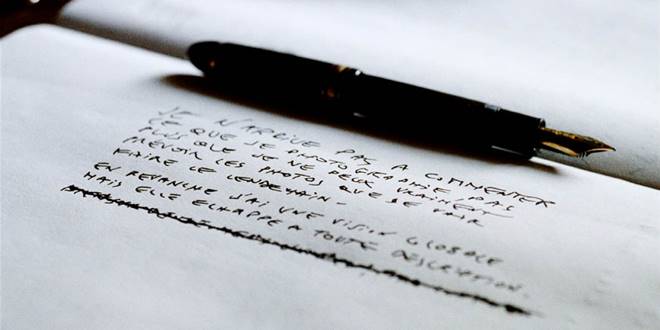 JE N'ARRIVE PAS A COMMENTER
CE QUE JE PHOTOGRAPHIE, PAS
PLUS QUE JE NE PEUX VRAIMENT
PREVOIR LES PHOTOS QUE JE VAIS
FAIRE LE LENDEMAIN -
EN REVANCHE J'AI UNE VISION GLOBALE
MAIS ELLE ECHAPPE A TOUTE DESCRIPTION.